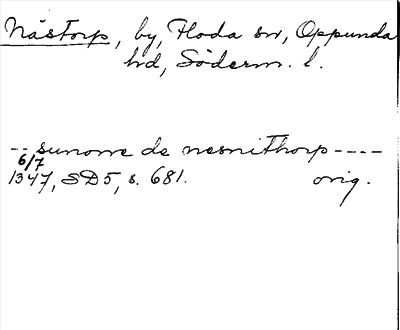 Nästorp, by, Floda sn, Oppunda
hd, Söderm. l.
-- sunone de nesnithorp ----
6/7
1347, SD5, s. 681. orig.